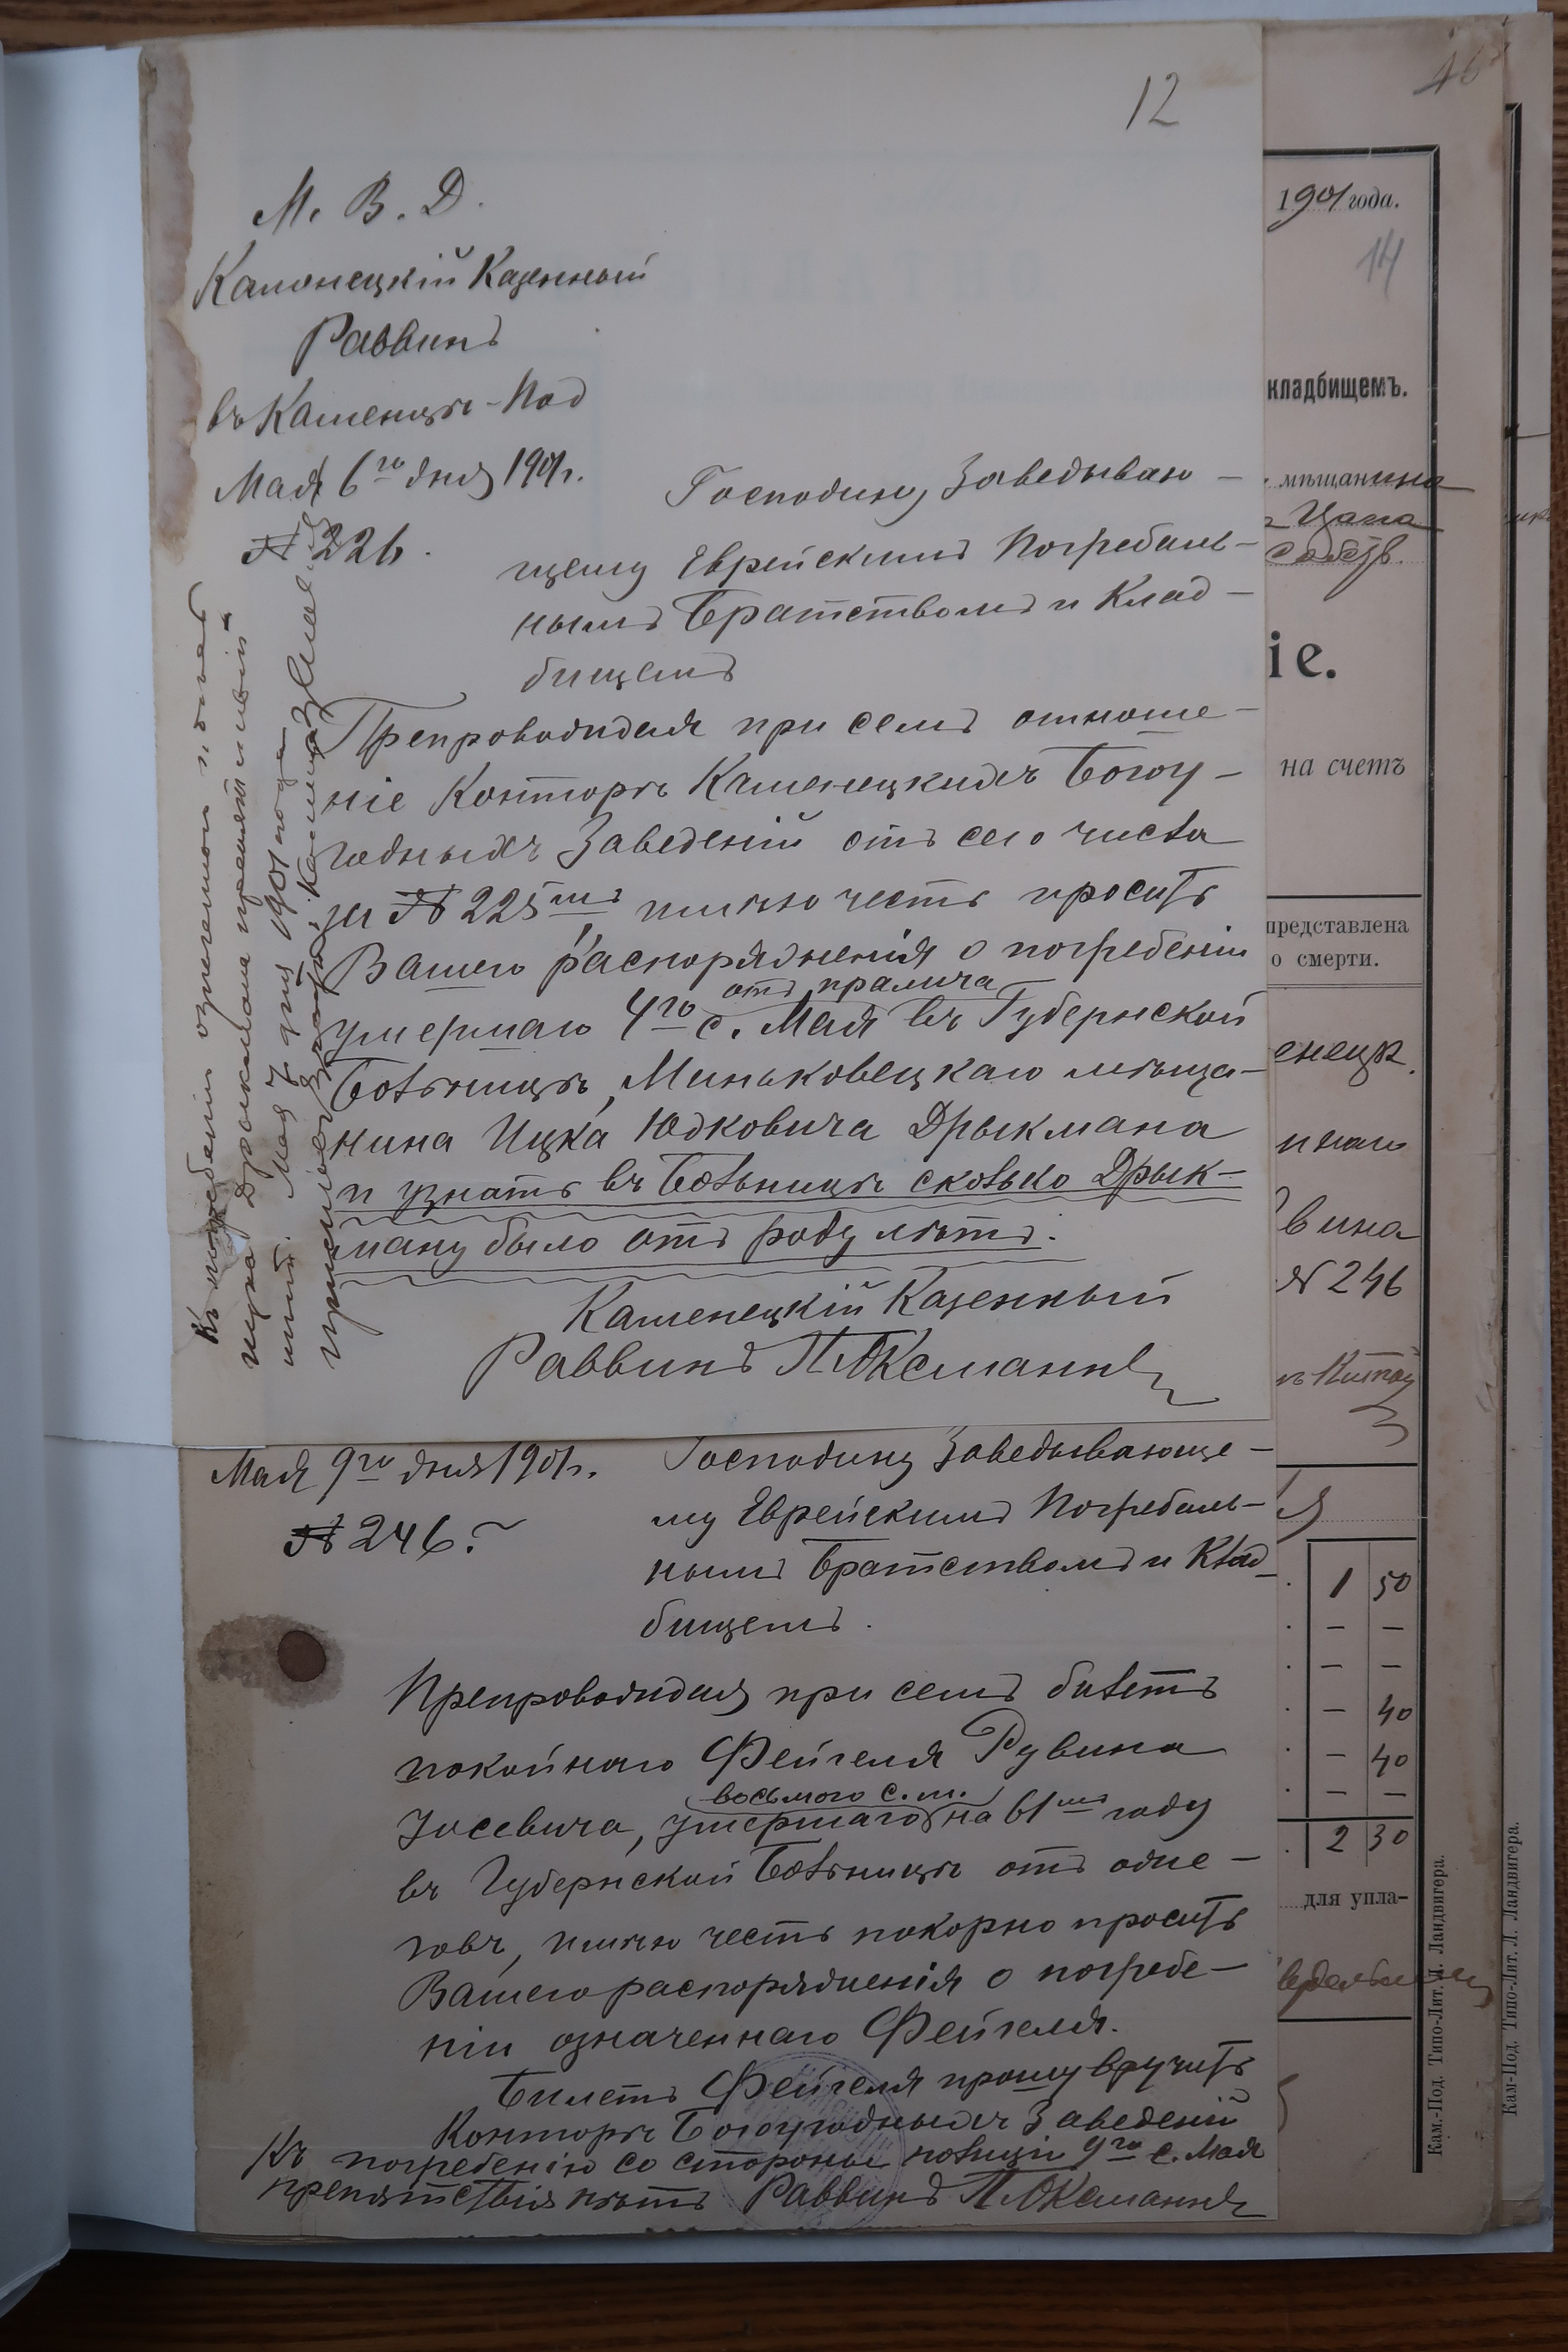 12
М. В. Д.
Каменецкій Казенный
Раввинъ
въ Каменцѣ-Под
Мая 6го дня 1901г.
№ 226.
Господину Заведываю-
щему Еврейскимъ Погребаль-
нымъ Братствомъ и Клад-
бищемъ
Препровождая при семъ отноше-
ніе Конторы Каменецкихъ Богоу-
годныхъ Заведеній отъ сего числа
за № 225мъ, имѣю честь просить
Вашего распоряженія о погребеніи
отъ паралича
умершаго 4го с. Мая въ Губернской
Больницѣ, Миньковецкаго мѣща-
нина Ицка Юдковича Дрыкмана
и узнать въ Больницѣ сколько Дрык-
ману было отъ роду лѣтъ.
Каменецкій Казенный
Раввинъ П. Оксманъ
Къ погребенію
Ицка Дрыкмана препятствій
Мая 7 дня 1901 года
Мая 9го дня 1901г.
№ 246.
Господину Заведывающе-
му Еврейскимъ Погребаль-
нымъ Братствомъ и Клад-
бищемъ.
Препровождая при семъ билетъ
покойнаго Фейгеля Рувина
восьмого с. м.
Іосевича, умершаго на 61мъ году
въ Губернской Больницѣ отъ
имѣю честь покорно просить
Вашего распоряженія о погребе-
ніи означеннаго Фейгеля.
Билетъ Фейгеля прошу вручить
Конторѣ Богоугодныхъ Заведеній
Къ погребенію со стороны полиціи 9го с. Мая
препятствія нѣтъ Раввинъ П. Оксманъ
1901 года.
14
кладбищемъ.
мѣщанина
Цапа
іе.
на счетъ
представлена
о смерти.
енецк.
вина
№ 246
1 50
— —
— —
— 40
— 40
— —
2 30
для упла-
Кам.-Под. Типо-Лит. Л. Ландвигера.
Кам-Под. Типо-Лит. Л. Ландвигера.